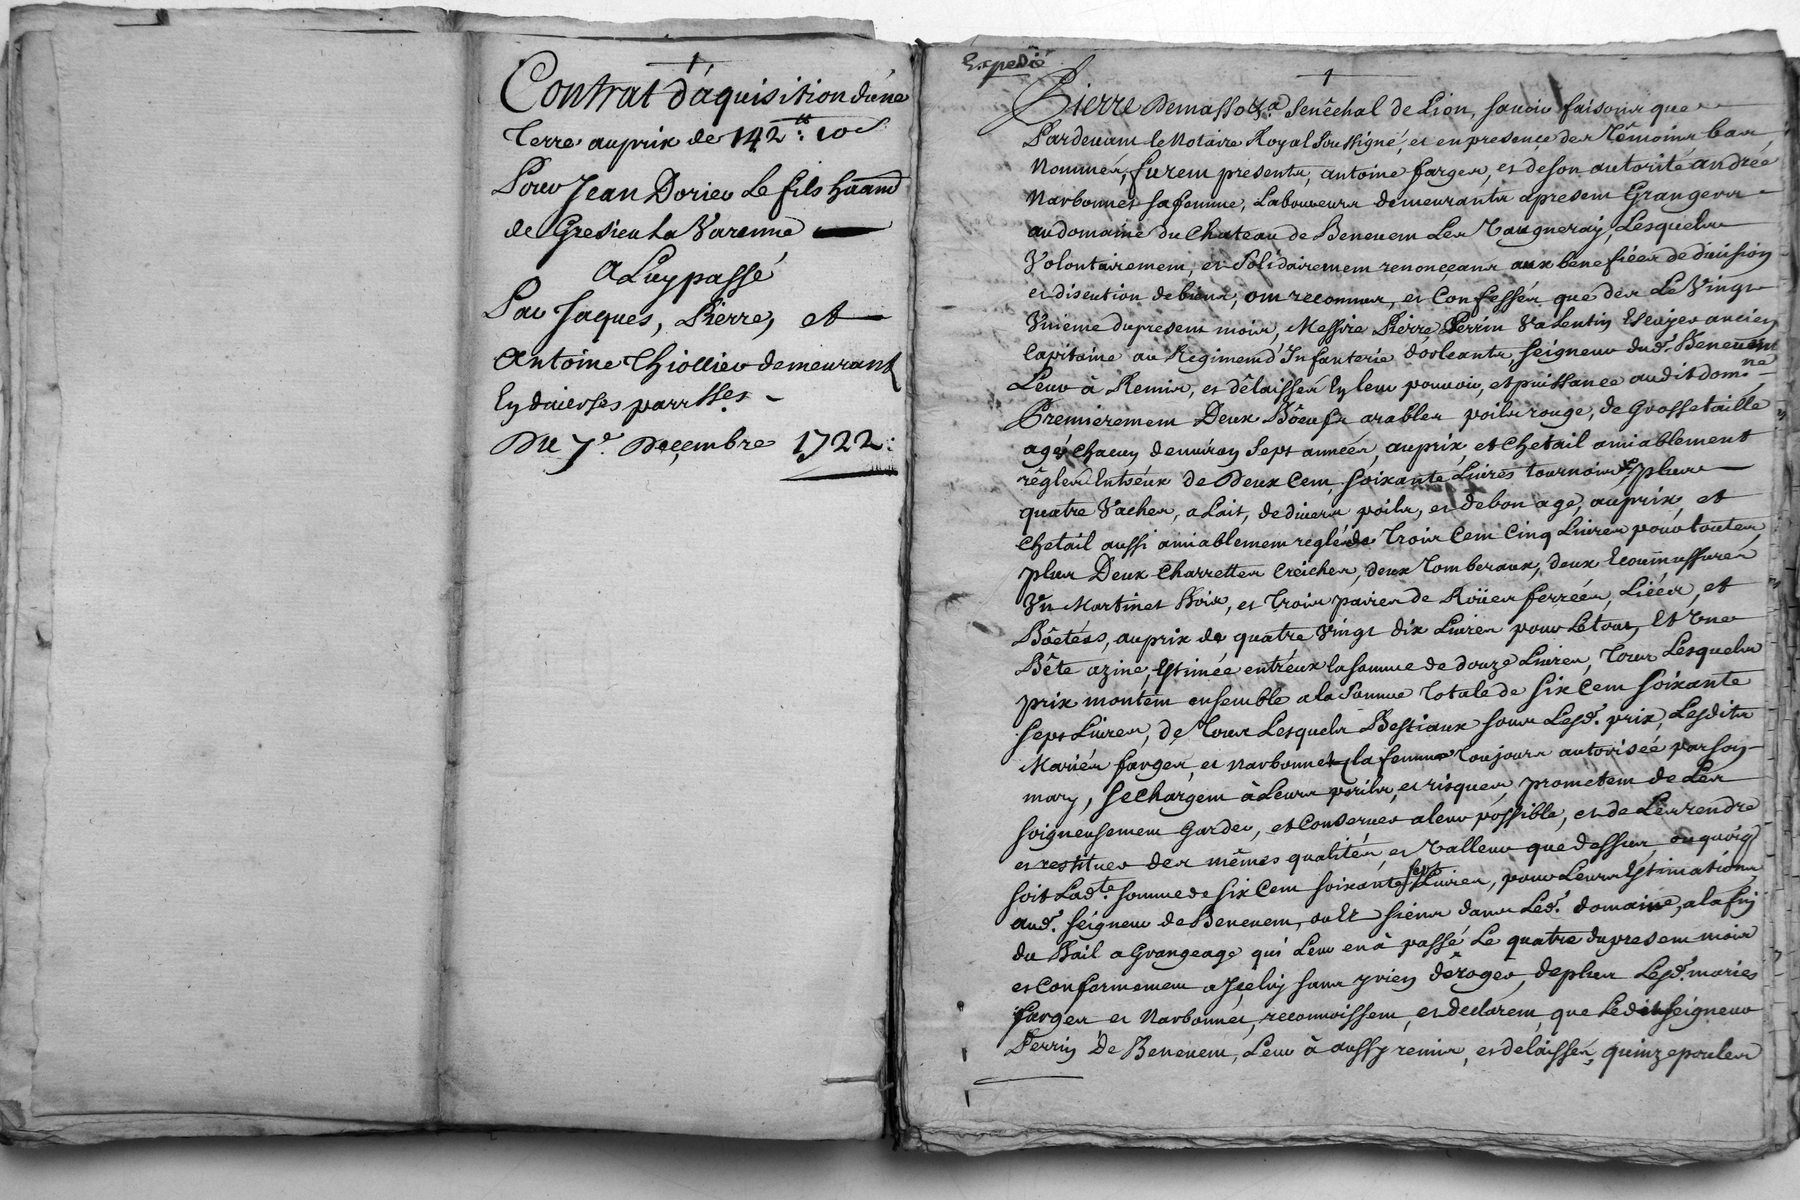 Contrat d'aquisition d'une
Terre au prix de 142ᵗᵗ: 10ˢ
Pour Jean Dorier Le fils habitant
de Gresieu La Varenne
A Luy passé
Par Jaques, Pierre, et
Antoine Thiollier demeurant
En diverses parrsses.
Du 7e. Decembre 1722:
Expedié
Pierre Demasso &.a Senêchal de Lion, savoir faisons que
Pardevant le Notaire Royal Soussigné, et en presence des Têmoins bas
Nommés, furent presents, antoine farges, et de son autorité andrée
Narbonnet sa femme, Laboureurs demeurants apresent Grangers
au domaine du Chateau de Benevent Les Vaugneray, Lesquels
Volontairement, et Solidairement renonçeans aux benefices de division
et discution de biens, ont reconnus, et Confessés que des Le Vingt
Unième du present mois, Messire Pierre Perrin Valentin Escuyer ancien
Capitaine au Regiment d'Infanterie d'orleants, seigneur dud. Benevent
Leur à Remis, et dêlaissés En leur pouvoir, et puissance audit dom.ne
Premierement Deux Bôeufs arables poils rouge, de Grosse taille
agés chacun d'environ Sept années, au prix, et chetail amiablement
rêglé Entr'eux de Deux Cent Soixante Livres tournois, plus
quatre Vaches, a Lait, de divers poils, et de bon age, au prix, et
Chetail aussi amiablement reglé de Trois Cent Cinq Livres pour toutes,
plus Deux Charrettes Creiches, deux Tomberaux, deux
Un Martinet Bois, et Trois paires de Roües ferrées, Liées, et
Bôetées, au prix de quatre Vingt dix Livres pour Le tout, Et Une
Bête azine, Estimée entr'eux la somme de douze Livres, Tous Lesquels
prix montent ensemble a la Somme Totale de Six Cent Soixante
Sept Livres, de Tous Lesquels Bestiaux sous Lesd. prix, Lesdits
Mariés farges, et Narbonnet, la femme Toujours autorisée par son
mary, se chargent à Leurs perils, et risques, prometent de Les
soigneusement Garder, et Conserver a leur possible, et de Les rendre
et restituer des mêmes qualités, et Valleur que dessus, ou quoi
soit Lad.te somme de Six Cent Soixante sept Livres, pour Leurs Estimations
aud. Seigneur de Benevent, ou Es siens dans Led. domaine, a la fin
du Bail a Grangeage qui Leur en à passé Le quatre du present mois
et Conformement a Icelui sans y rien dêroger, de plus Lesd. maries
Farges et Narbonnet, reconnoissent, et declarent, que Ledit Seigneur
Perrin De Benevent, Leur à aussy remis, et delaissés, quinze poules